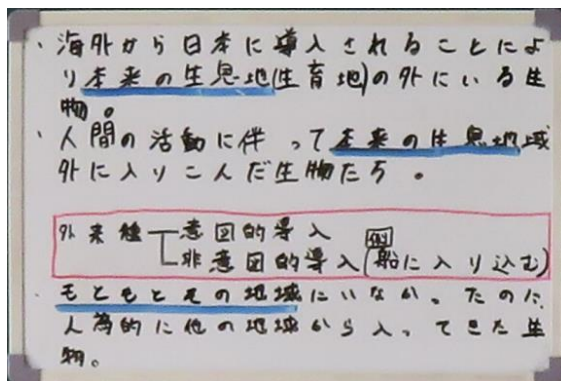 、海外から日本に導入されることによ
り本来の生息地(生育地)の外にいる生
物。
、人間の活動に伴って本来の生息地域
外に入りこんだ生物たち。
外来種 意図的導入
例
非意図的導入(船に入り込む)
、もともとその地域にいなかったのに、
人為的に他の地域から入ってきた生
物。